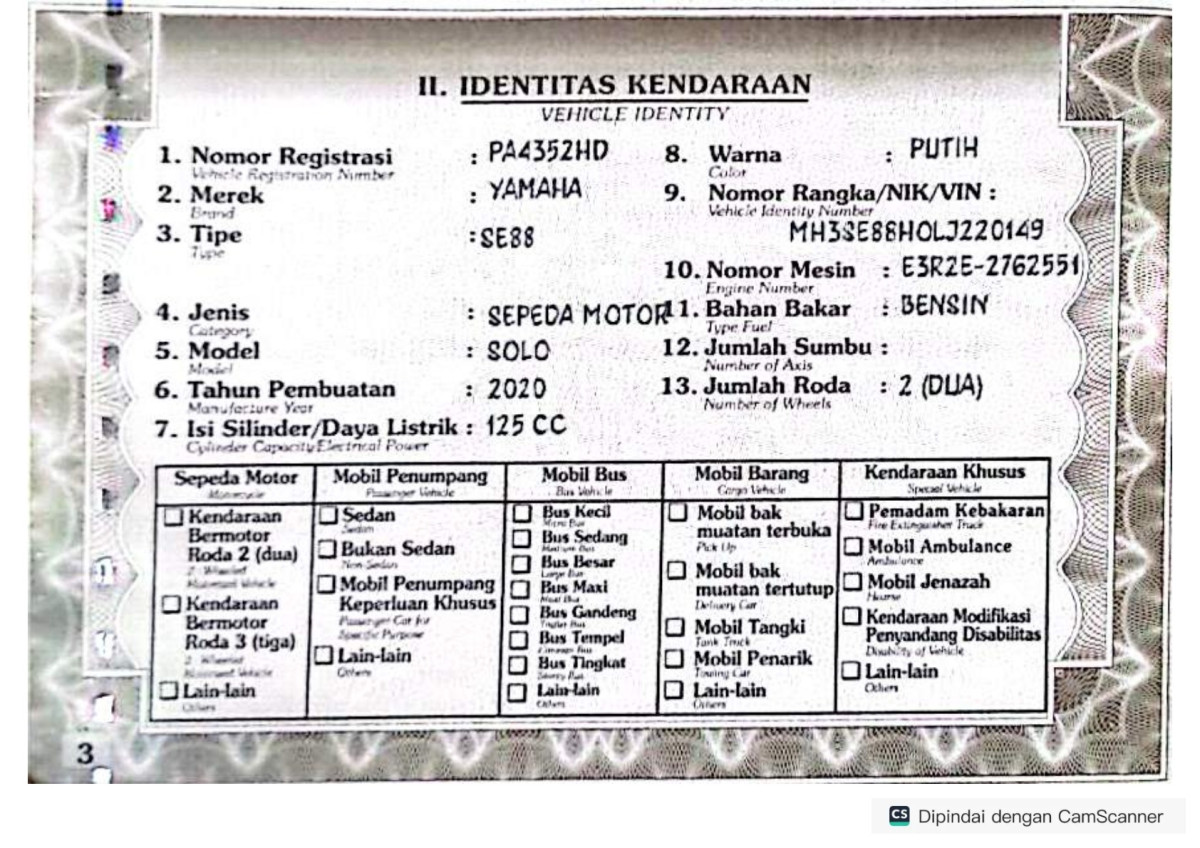 II. IDENTITAS KENDARAAN
VEHICLE IDENTITY
1. Nomor Registrasi : PA4352HD
Vehicle Registration Number
2. Merek : YAMAHA
Brand
3. Tipe : SE88
Type
4. Jenis : SEPEDA MOTOR
Category
5. Model : SOLO
Model
6. Tahun Pembuatan : 2020
Manufacture Year
7. Isi Silinder/Daya Listrik : 125 CC
Cylinder Capacity/Electrical Power
8. Warna : PUTIH
Color
9. Nomor Rangka/NIK/VIN :
Vehicle Identity Number
MH3SE88HOLJ220149
10. Nomor Mesin : E3R2E-2762551
Engine Number
11. Bahan Bakar : BENSIN
Type Fuel
12. Jumlah Sumbu :
Number of Axis
13. Jumlah Roda : 2 (DUA)
Number of Wheels
Sepeda Motor
Motorcycle
Kendaraan
Bermotor
Roda 2 (dua)
2 Wheeled
Motorized Vehicle
Kendaraan
Bermotor
Roda 3 (tiga)
Wheeled
Motorized Vehicle
Lain-lain
Others
Mobil Penumpang
Passenger Vehicle
Sedan
Sedan
Bukan Sedan
Non-Sedan
Mobil Penumpang
Keperluan Khusus
Passenger Car for
Specific Purpose
Lain-lain
Others
Mobil Bus
Bus Vehicle
Bus Kecil
Micro Bus
Bus Sedang
Medium Bus
Bus Besar
Large Bus
Bus Maxi
Maxi Bus
Bus Gandeng
Bus
Bus Tempel
Bus
Bus Tingkat
Bus
Lain-lain
Others
Mobil Barang
Cargo Vehicle
Mobil bak
muatan terbuka
Pick Up
Mobil bak
muatan tertutup
Delivery Car
Mobil Tangki
Tank Truck
Mobil Penarik
Towing Car
Lain-lain
Others
Kendaraan Khusus
Special Vehicle
Pemadam Kebakaran
Fire Extinguisher Truck
Mobil Ambulance
Ambulance
Mobil Jenazah
Hearse
Kendaraan Modifikasi
Penyandang Disabilitas
Disability of Vehicle
Lain-lain
Others
3
CS Dipindai dengan CamScanner